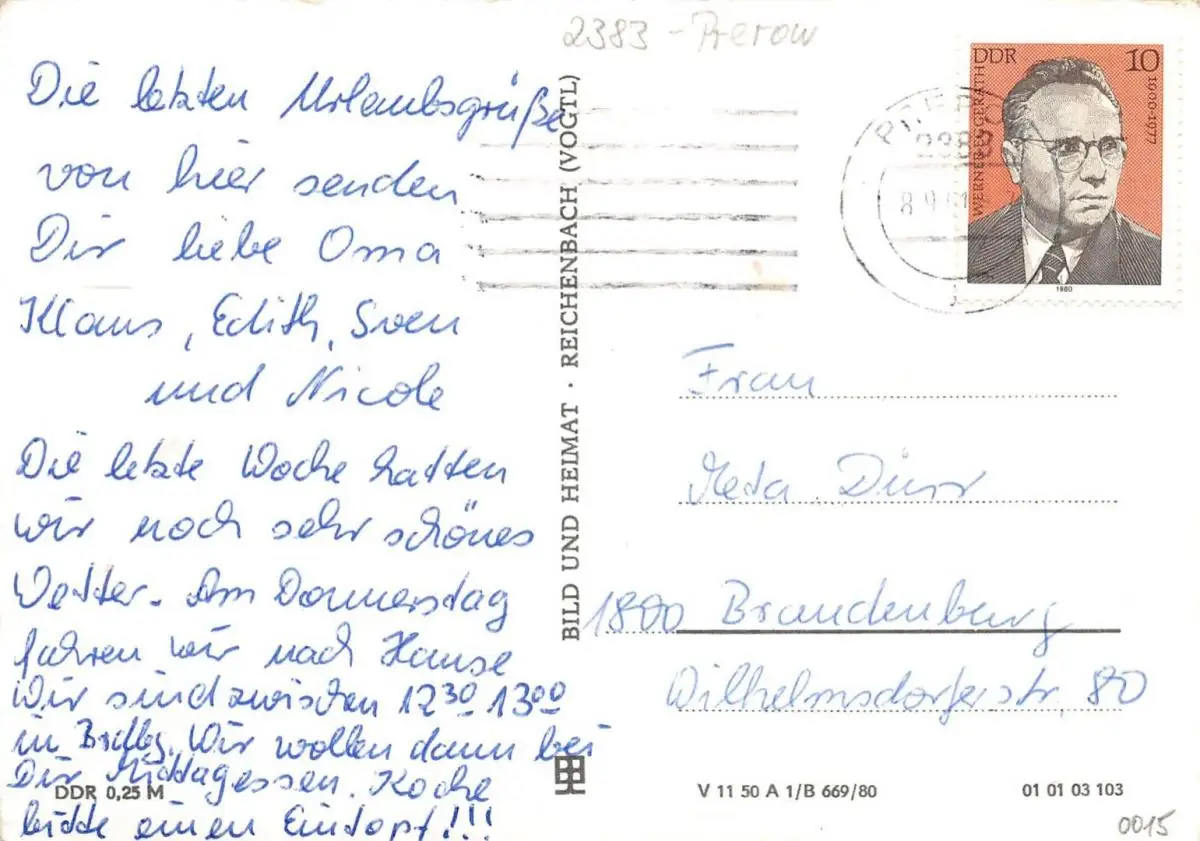 2383 - Prerow
Die letzten Urlaubsgrüße
von hier senden
Dir liebe Oma
Klaus, Edith, Sven
und Nicole
Die letzte Woche hatten
wir noch sehr schönes
Wetter. Am Donnerstag
fahren wir nach Hause
Wir sind zwischen 12³⁰ 13⁰⁰
in Brdbg. Wir wollen dann bei
Dir Mittagessen. Koche
bitte einen Eintopf!!!
DDR 0,25 M
BILD UND HEIMAT · REICHENBACH (VOGTL)
DDR 10
WERNER EGGERATH
1900-1977
1980
Frau
Meta Dürr
1800 Brandenburg
Wilhelmsdorferstr. 80
V 11 50 A 1/B 669/80
01 01 03 103
0015